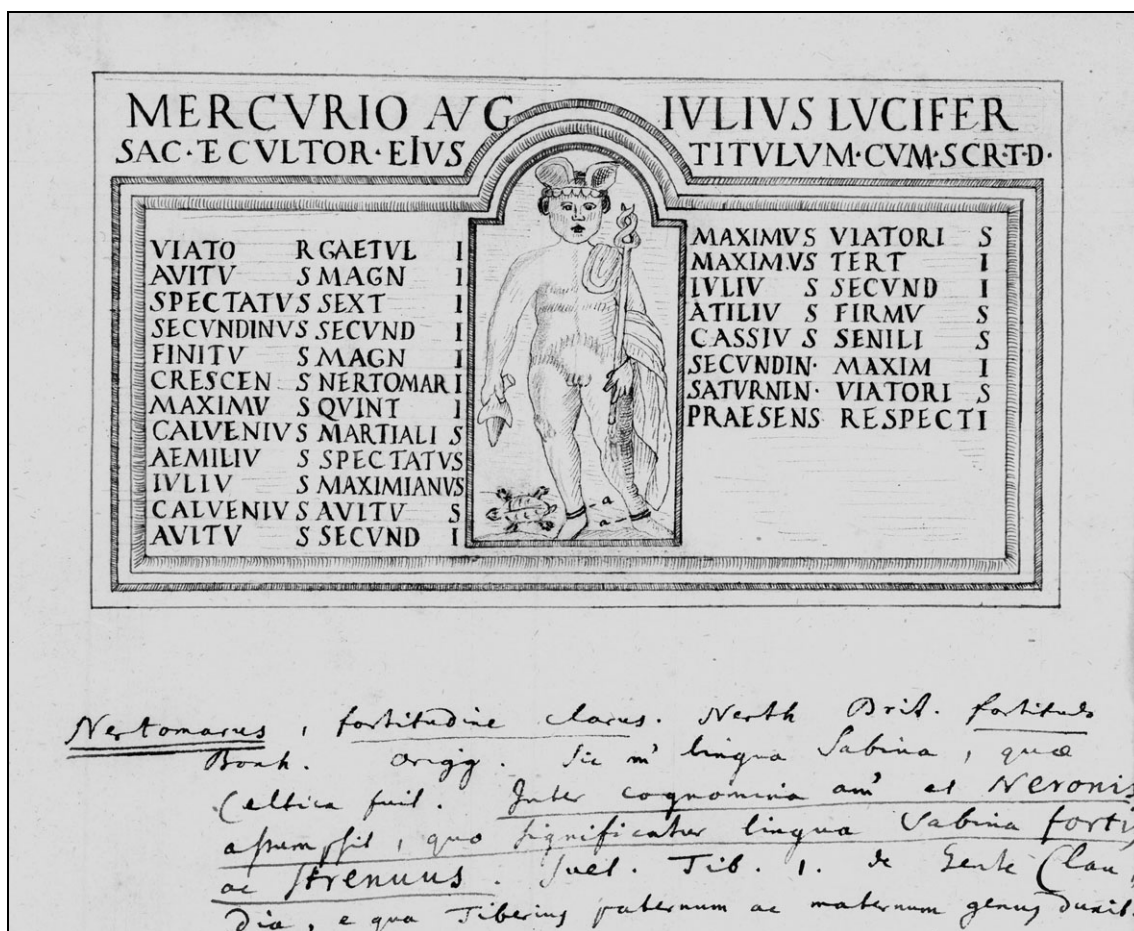 MERCVRIO AVG IVLIVS LVCIFER
SAC·E CVLTOR·EIVS TITVLVM·CVM·SCR·T·D·
VIATO R GAETVL I
AVITV S MAGN I
SPECTATVS SEXT I
SECVNDINVS SECVND I
FINITV S MAGN I
CRESCEN S NERTOMAR I
MAXIMV S QVINT I
CALVENIVS MARTIALI S
AEMILIV S SPECTATVS
IVLIV S MAXIMIANVS
CALVENIVS AVITV S
AVITV S SECVND I
MAXIMVS VIATORI S
MAXIM.VS TERT I
IVLIV S SECVND I
ATILIV S FIRMV S
CASSIV S SENILI S
SECVNDIN· MAXIM I
SATVRNIN· VIATORI S
PRAESENS RESPECTI
a
a
Nertomarus, fortitudine clarus. Nerth Brit. fortitudo
Boxh. Origg. Sic in lingua Sabina, quæ
Celtica fuit. Inter cognomina et Neronis
assumpsit, quo significatur lingua Sabina fortis
ac strenuus. Suet. Tib. 1. de Gente Clau,
dia, e qua Tiberius paternum ac maternum genus duxit.